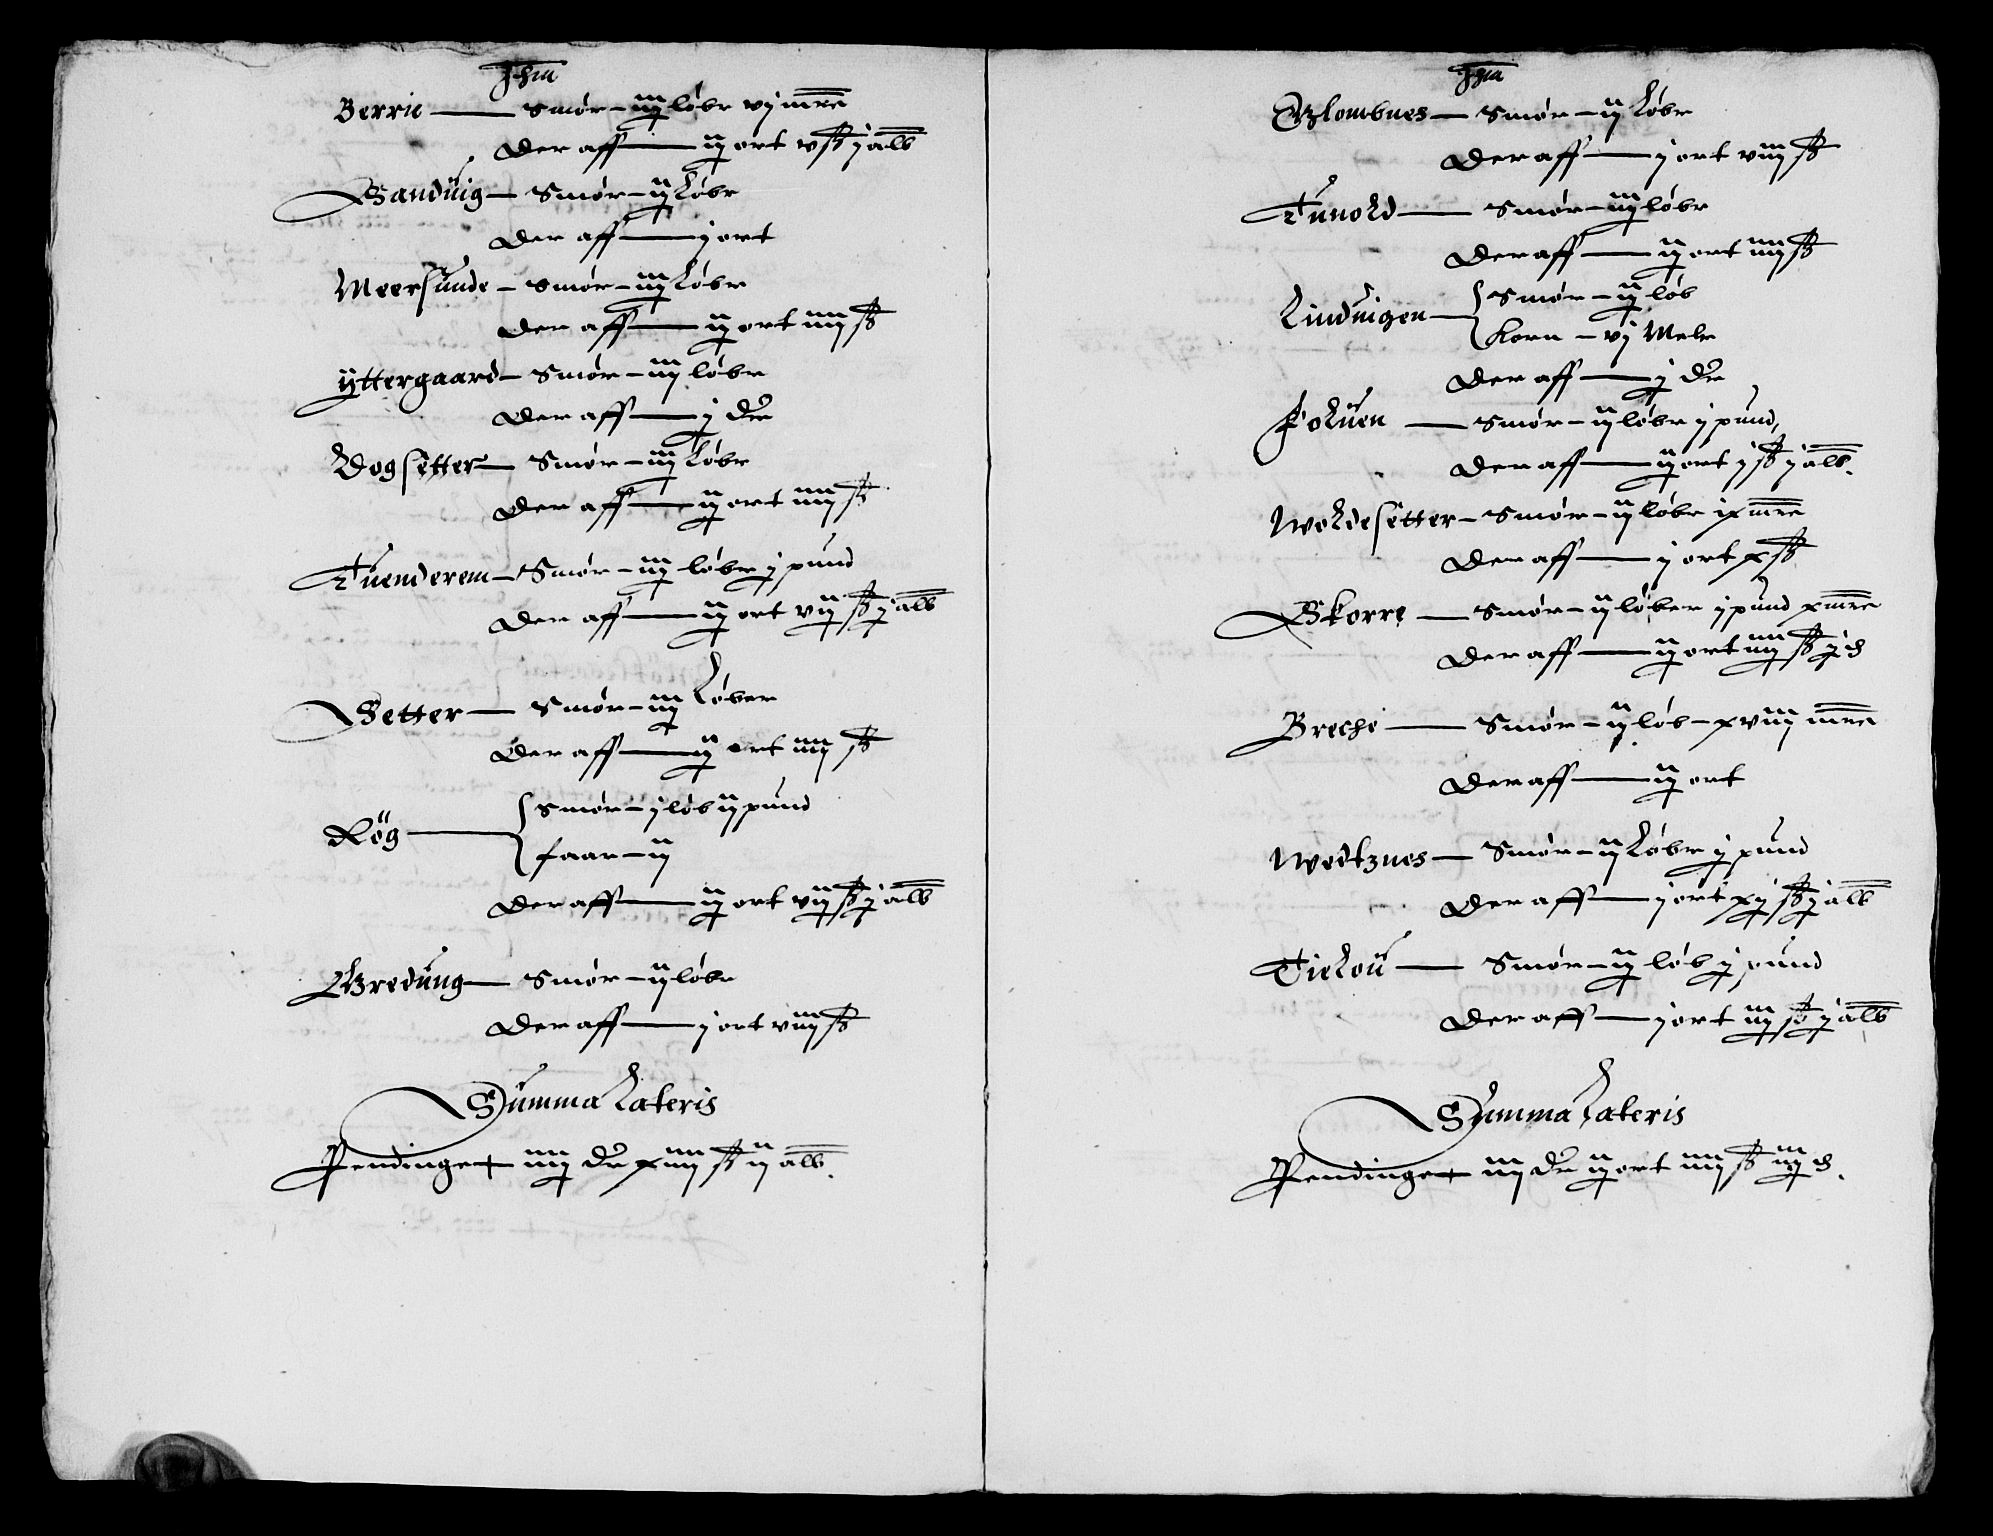 Jhm
Berrie — Smør – iij løbe vj mrc
Der aff — ij ort v ß j alb
Sanduig — Smør – ij Løbe
Der aff — j ort
Meersunde – Smør – iij Løbe
Der aff — ij ort iiij ß
Yttergaard – Smør – iij løbe
Der aff — j dlr
Vogsetter — Smør – iij Løbe
Der aff — ij ort iiij ß
Tuenderem – Smør – iij løbe j pund
Der aff — ij ort vij ß j alb
Setter — Smør – iij Løber
Der aff — ij ort iiij ß
Røg — Smør – j løb ij pund
faar – ij
Der aff — ij ort vij ß j alb
Bredung — Smør – ij løbe
Der aff — j ort viij ß
Summa Lateris
Pendinge + iiij dlr xiiij ß ij alb.
Jhm
Glombnes — Smør – ij Løbe
Der aff — j ort viij ß
Tunold — Smør – iij løbe
Der aff — ij ort iiij ß
Linduigen — Smør – ij løb
Korn – vj Mele
Der aff — j dlr
Foluen — Smør – ij løbe j pund,
Der aff — ij ort j ß j alb.
Woldesetter – Smør – ij løbe ix mrc
Der aff — j ort x ß
Skorre — Smør – ij løber j pund x mrc
Der aff — ij ort iiij ß j d
Breche — Smør – ij løb – xviij mrc
Der aff — ij ort
Wedtznes — Smør – ij Løbe j pund
Der aff — j ort xj ß j alb
Tielou — Smør – ij løb j pund
Der aff — j ort iij ß j alb
Summa Lateris
Pendinge + iiij dlr ij ort iiij ß iij d.